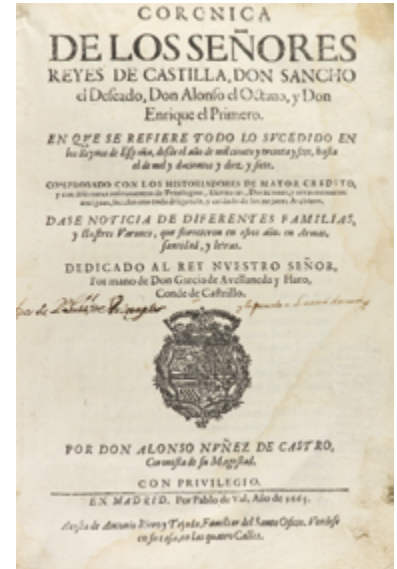 CORONICA
DE LOS SEÑORES
REYES DE CASTILLA, DON SANCHO
el Deseado, Don Alonso el Octauo, y Don
Enrique el Primero.
EN QVE SE REFIERE TODO LO SVCEDIDO EN
los Reynos de España, desde el año de mil ciento y treinta y seis, hasta
el de mil y docientos y diez y siete.
COMPROBADO CON LOS HISTORIADORES DE MAYOR CREDITO,
y con diferentes instrumentos de Priuilegios, Escrituras,
antiguas, y cuidado de los mejores Archiuos.
DASE NOTICIA DE DIFERENTES FAMILIAS,
y Ilustres Varones, que florecieron en estos años en Armas,
santidad, y letras.
DEDICADO AL REY NVESTRO SEÑOR,
Por mano de Don Garcia de Avellaneda y Haro,
Conde de Castrillo.
POR DON ALONSO NVÑEZ DE CASTRO,
Coronista de su Magestad.
CON PRIVILEGIO.
EN MADRID. Por Pablo de Val. Año de 1665.
Acosta de Antonio Riero y Tejada, Familiar del Santo Oficio. Vendese
en su casa, en las quatro Calles.